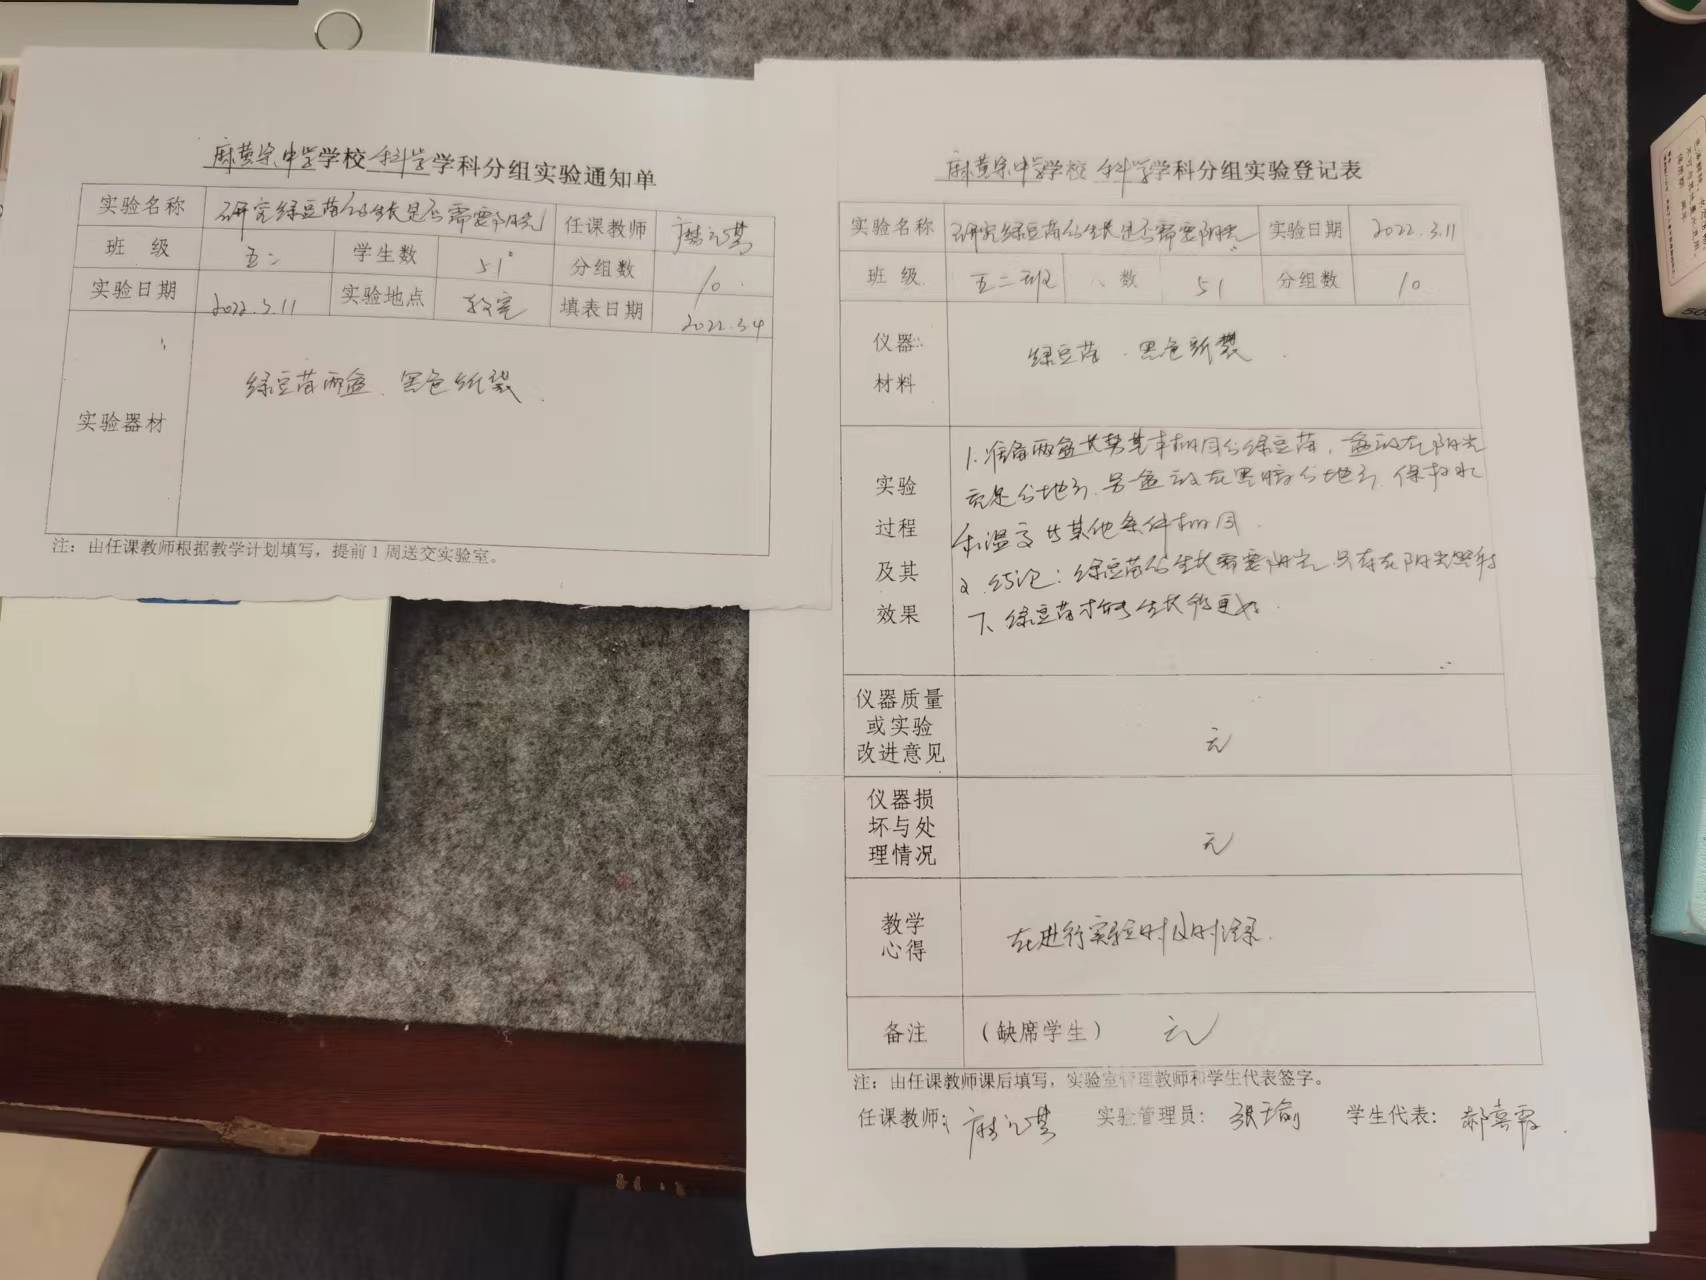 麻黄梁中学学校 科学学科分组实验通知单
实验名称 研究绿豆苗的生长是否需要阳光 任课教师
班 级 五二 学生数 51 分组数 10
实验日期 2022.3.11 实验地点 教室 填表日期 2022.3.4
实验器材 绿豆苗两盆、黑色纸袋
注：由任课教师根据教学计划填写，提前1周送交实验室。
麻黄梁中学学校 科学学科分组实验登记表
实验名称 研究绿豆苗的生长是否需要阳光 实验日期 2022.3.11
班 级 五二班 数 51 分组数 10
仪器
材料
绿豆苗、黑色纸袋
实验
过程
及其
效果
1.准备两盆长势基本相同的绿豆苗，一盆放在阳光
充足的地方，另一盆放在黑暗的地方，保持水
和温度等其他条件相同.
2.结论：绿豆苗的生长需要阳光，只有在阳光照射
下、绿豆苗才能生长得更好.
仪器质量
或实验
改进意见
无
仪器损
坏与处
理情况
无
教学
心得
在进行实验时及时记录.
备注 （缺席学生） 无
注：由任课教师课后填写，实验室管理教师和学生代表签字。
任课教师： 实验管理员：张瑜 学生代表：郝喜霞